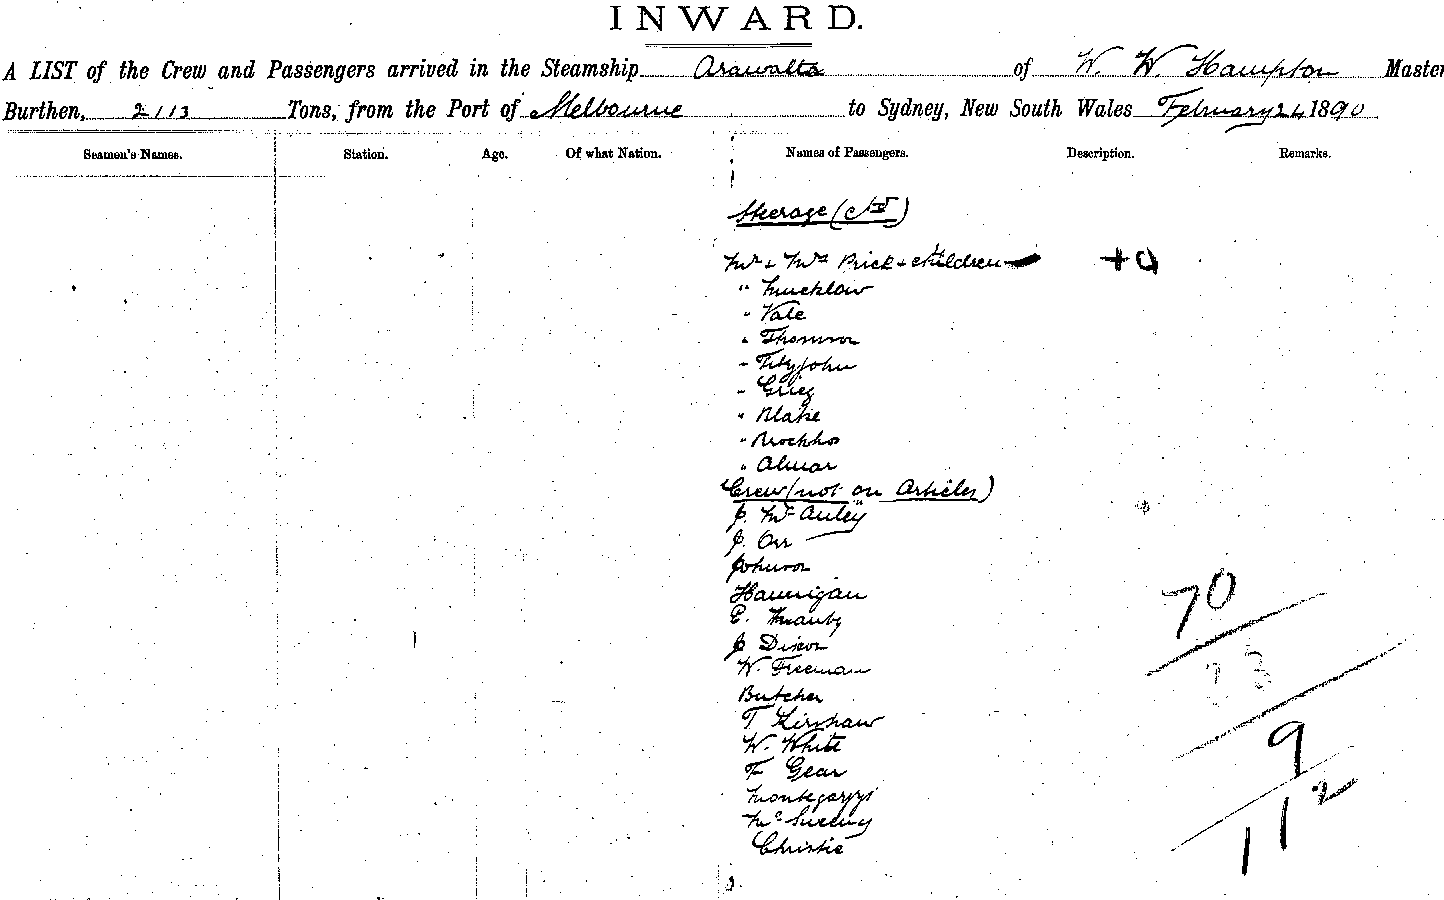 INWARD.
A LIST of the Crew and Passengers arrived in the Steamship Arawatta of W. W. Hampton Master
Burthen, 2113 Tons, from the Port of Melbourne to Sydney, New South Wales February 24 1890
Seamen's Names. Station. Age. Of what Nation. Names of Passengers. Description. Remarks.
Steerage (ctd)
Mr & Mrs Price & children
" Mucklow
" Vale
" Thomson
" Fitzjohn
" Grieg
" Blake
"
"
Crew (not on Articles)
J. McAuley
J. Orr
Johnson
Hannigan
E. Manby
J Dixon
W. Freeman
Butcher
T Kirshaw
W. White
F Gear
McSweeny
Christie
70
33
9
112